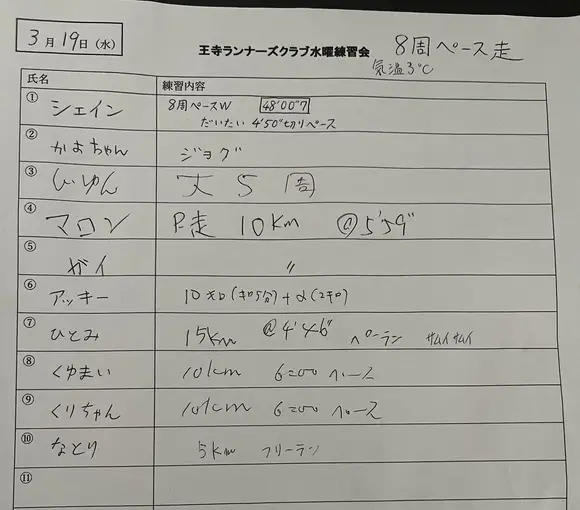 3月19日(水)
王寺ランナーズクラブ水曜練習会 8周ペース走
気温3℃
氏名 練習内容
① シェイン 8周ペースW 48'00"7
だいたい 4'50"切りペース
② かよちゃん ジョグ
③ じゅん 大5周
④ マロン P走 10Km @5'59"
⑤ ガイ 〃
⑥ アッキー 10キロ(キロ5分)+α(2キロ)
⑦ ひとみ 15km @4'46" ペーラン サムイサムイ
⑧ くゆまい 10km 6=00 ペース
⑨ くりちゃん 10km 6=00 ペース
⑩ なとり 5km フリーラン
⑪